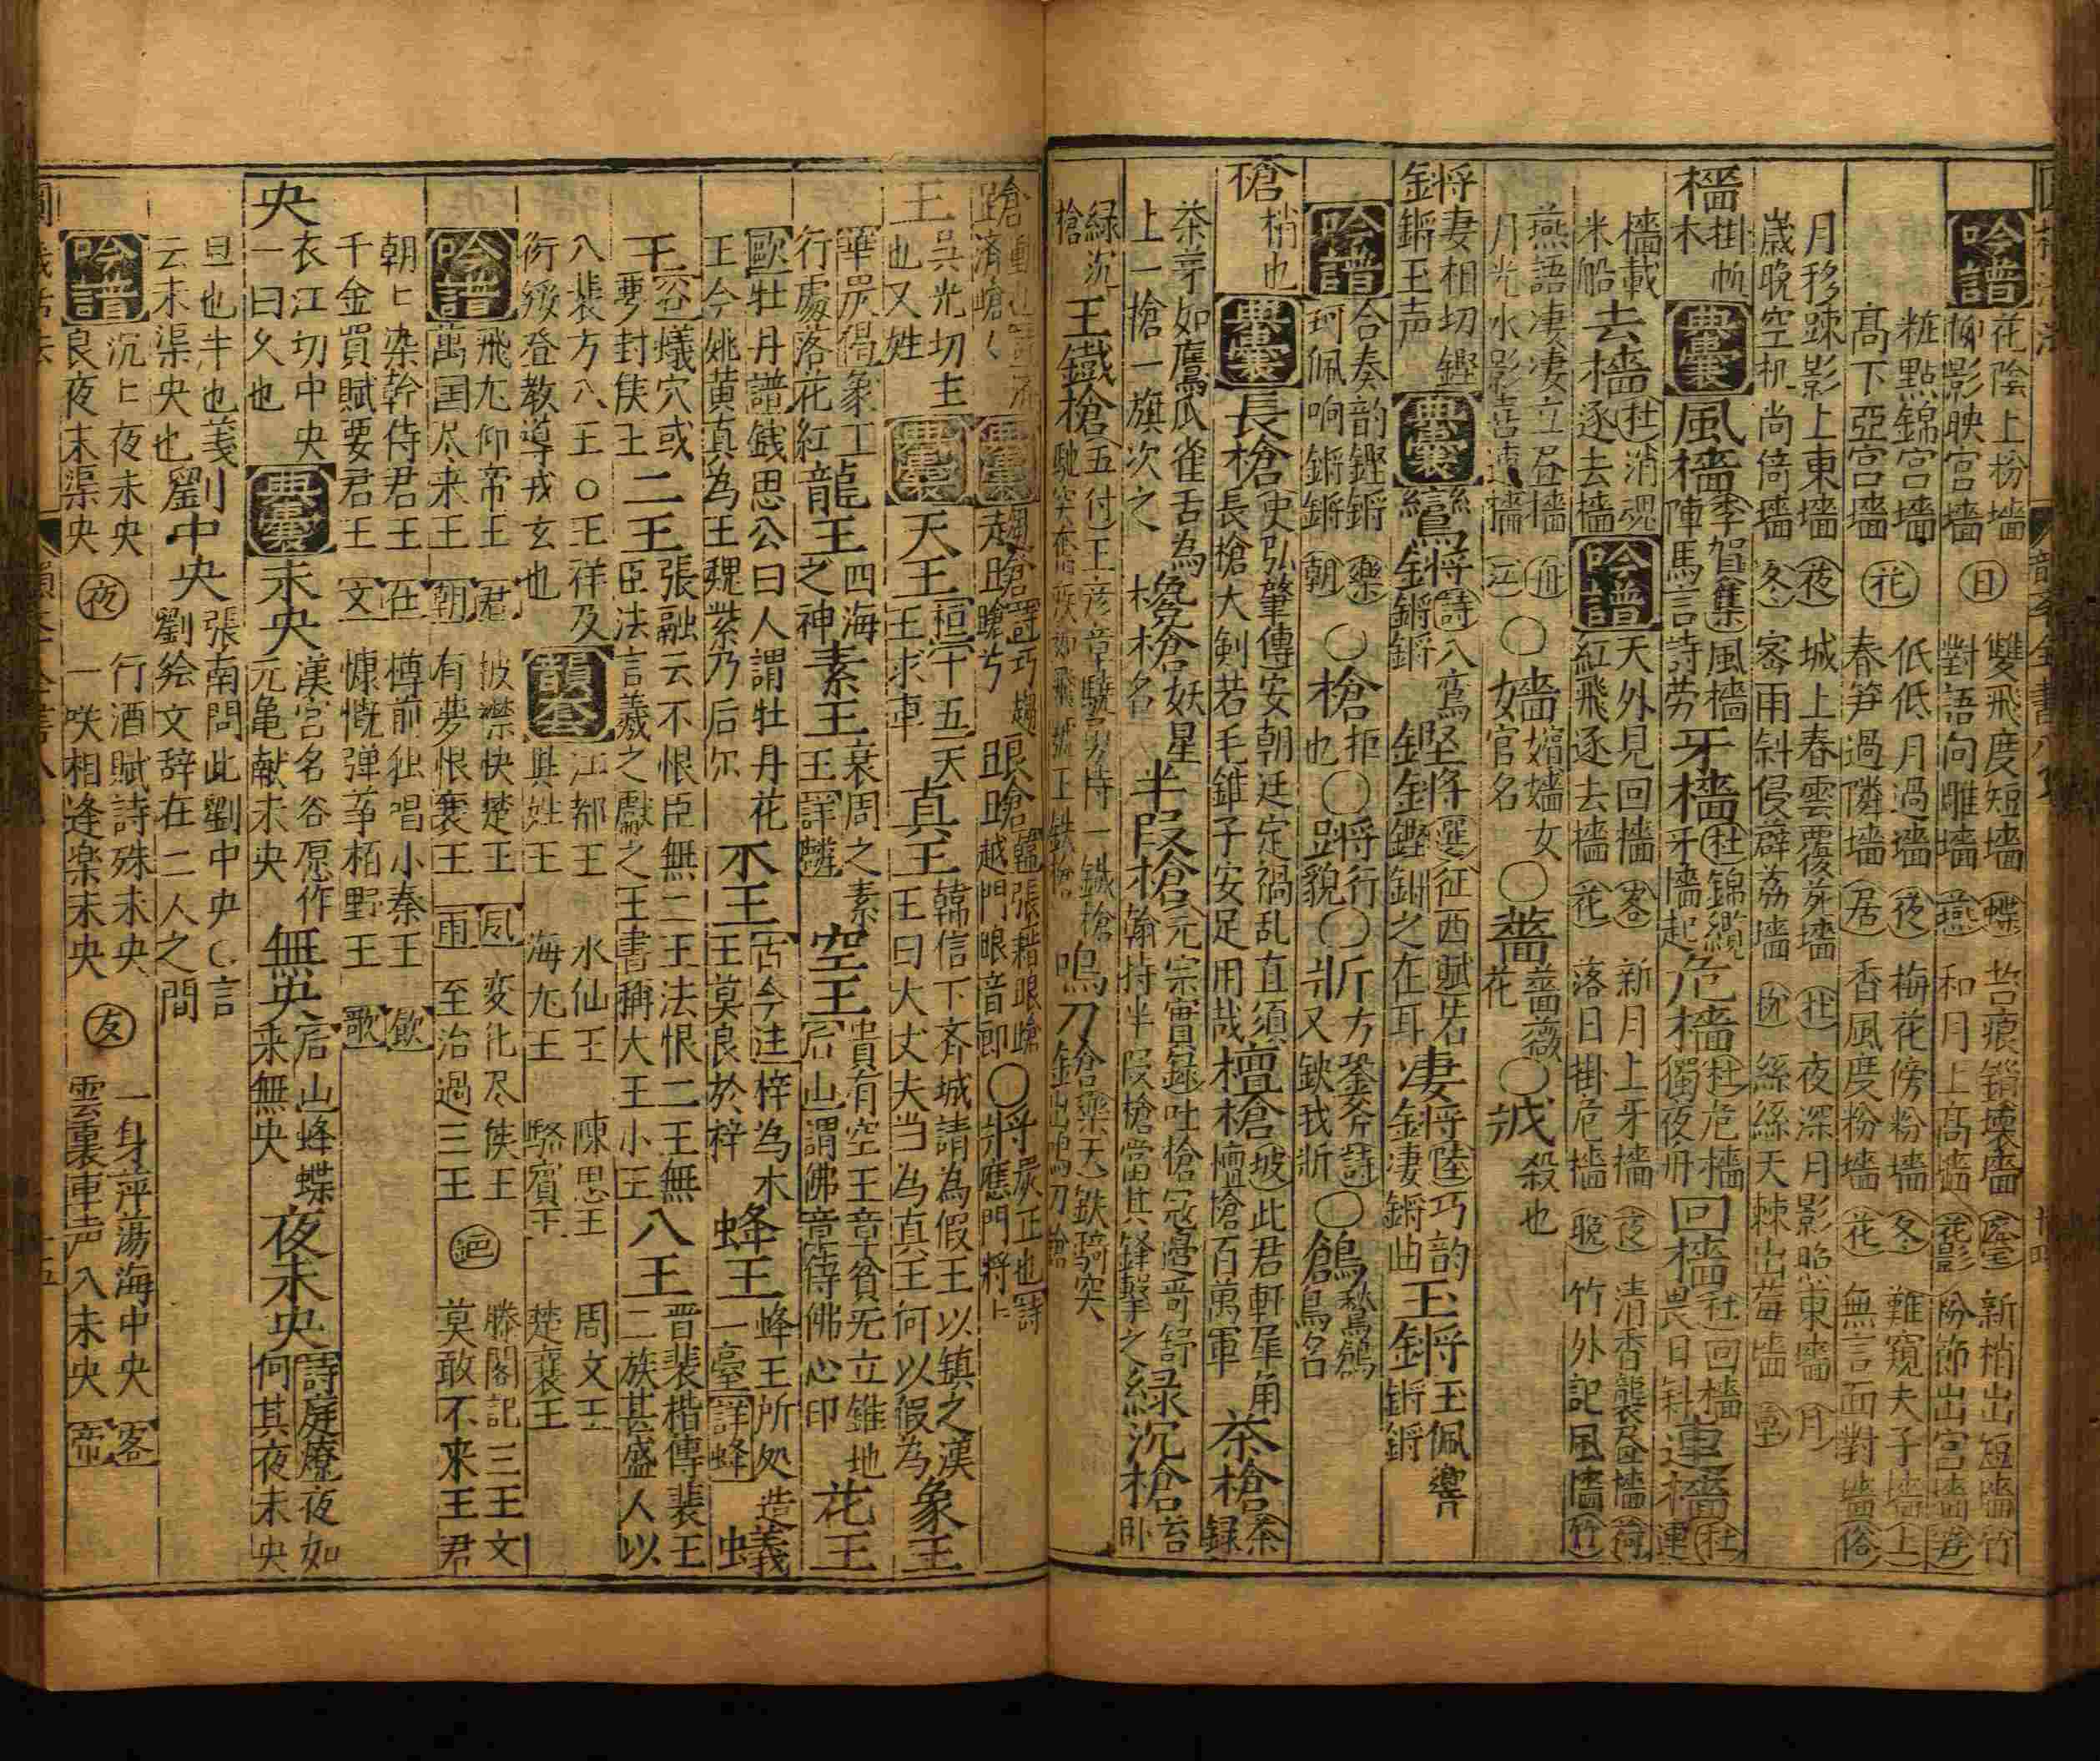 吟譜 花陰上粉墻 柳影映宮墻 日 雙飛度短墻 對語向雕墻 蝶 燕 苔痕鎖壞墻 和月上高墻 花影 新梢出短墻 竹 粉節出宮墻
粧點錦宮墻 高下亞宮墻 花 低低月過墻 春笋過隣墻 夜 居 梅花傍粉墻 香風度粉墻 冬 花 難窺夫子墻 無言面對墻 上 俗
月移踈影上東墻 歲晚空机尚倚墻 夜 冬 城上春雲覆苑墻 密雨斜侵薜荔墻 杜 柳 夜深月影照東墻 絲絲天棘出莓墻 月 草
檣 掛帆木 典囊 風檣 季賀集風檣陣馬言詩勞 牙檣 杜錦纜牙檣起 危檣 杜危檣獨夜舟 回檣 杜回檣畏日斜 連檣 杜連
檣載米船 去檣 杜消魂逐去檣 吟譜 天外見回檣 紅飛逐去檣 客 花 新月上牙檣 落日掛危檣 夜 晚 清香襲
竹外記風墻 竹
燕語凄凄立昼檣 月光水影 遠檣 江 ○嬙 嬙女官名 ○薔 薔薇花 ○戕 殺也
鏘 妻相切鏗鏘玉声 典囊 鸞鏘 詩八鸞鏘鏘 鏗鏘 選征西賦若鏗鏘之在耳 凄鏘 陸巧韵凄鏘曲 玉鏘 玉佩響鏘鏘
吟譜 合奏韵鏗鏘 珂佩响鏘鏘 樂 朝 ○槍 拒也 ○蹡 行貌 ○斨 方銎斧詩又缺我斨 ○鶬 鶖鶬鳥名
槍 梢也 典囊 長槍 史弘肇傳安朝廷定禍乱直須長槍大剣若毛錐子安足用哉 檀槍 坡此君軒犀角檀槍百萬軍 茶槍 茶録
茶芽如鷹爪雀舌為上一搶一旗次之 欃槍 妖星名 半段槍 元宗實録吐槍冦邊哥舒翰持半段槍當其鋒擊之 緑沉槍 苔卧
緑沉槍 王鐵槍 五付王彦章驍勇持一鐵槍馳突 疾如飛號王鉄槍 鳴刀槍 樂天鉄騎突金出鳴刀槍
蹌 動也 濟蹌々 典囊 趨蹌 詩巧趨蹌兮 踉蹌 韓張籍踉蹌越門限音郎 ○將 嚴正也詩應門將〻
王 吳光切主也又姓 典囊 天王 桓十五天王求車 真王 韓信下齐城請為假王以镇之漢王曰大丈夫当為真王何以假為 象王
華炭 象王行處落花紅 龍王 四海之神 素王 衰周之素王詳麟 空王 貴有空王章貧无立錐地 宕山謂佛章待佛心印 花王
歐牡丹譜錢思公曰人謂牡丹花王今姚黄真為王魏紫乃后尔 木王 古今注梓為木王莫良於梓 蜂王 蜂王所处造一臺詳蜂 蟻
王 蟻穴或夢封侯王 二王 張融云不恨臣無二王法恨二王無臣法 言羲之獻之王書稱大王小王 八王 晋裴楷傳裴王二族甚盛人以
八裴方八王○王祥及衍綏登敎導戎玄也 韻公 江都王 與姓王 水仙王 海尤王 陳思王 駱賓王 周文王 楚襄王
吟譜 飛龙仰帝王 萬国尽来王 君 朝 披襟快楚王 有夢恨襄王 風 雨 変化尽侯王 至治過三王 絕 滕閣記三王文 莫敢不来王君
朝〻染幹侍君王 千金買賦要君王 在 文 樽前独唱小秦王 慷慨弹筝栢野王 飲 歌
央 衣江切中央一曰久也 典囊 未央 漢宮名谷愿作元亀献未央 無央 宕山蜂蝶来無央 夜未央 詩庭燎夜如何其夜未央
旦也半也羑云未渠央也 劉中央 張南問此劉中央言劉絵文辞在二人之間
吟譜 沉〻夜未央 良夜未渠央 夜 行酒賦詩殊未央 一咲相逢楽未央 友 一身萍蕩海中央 雲裏車声入未央 客 帝